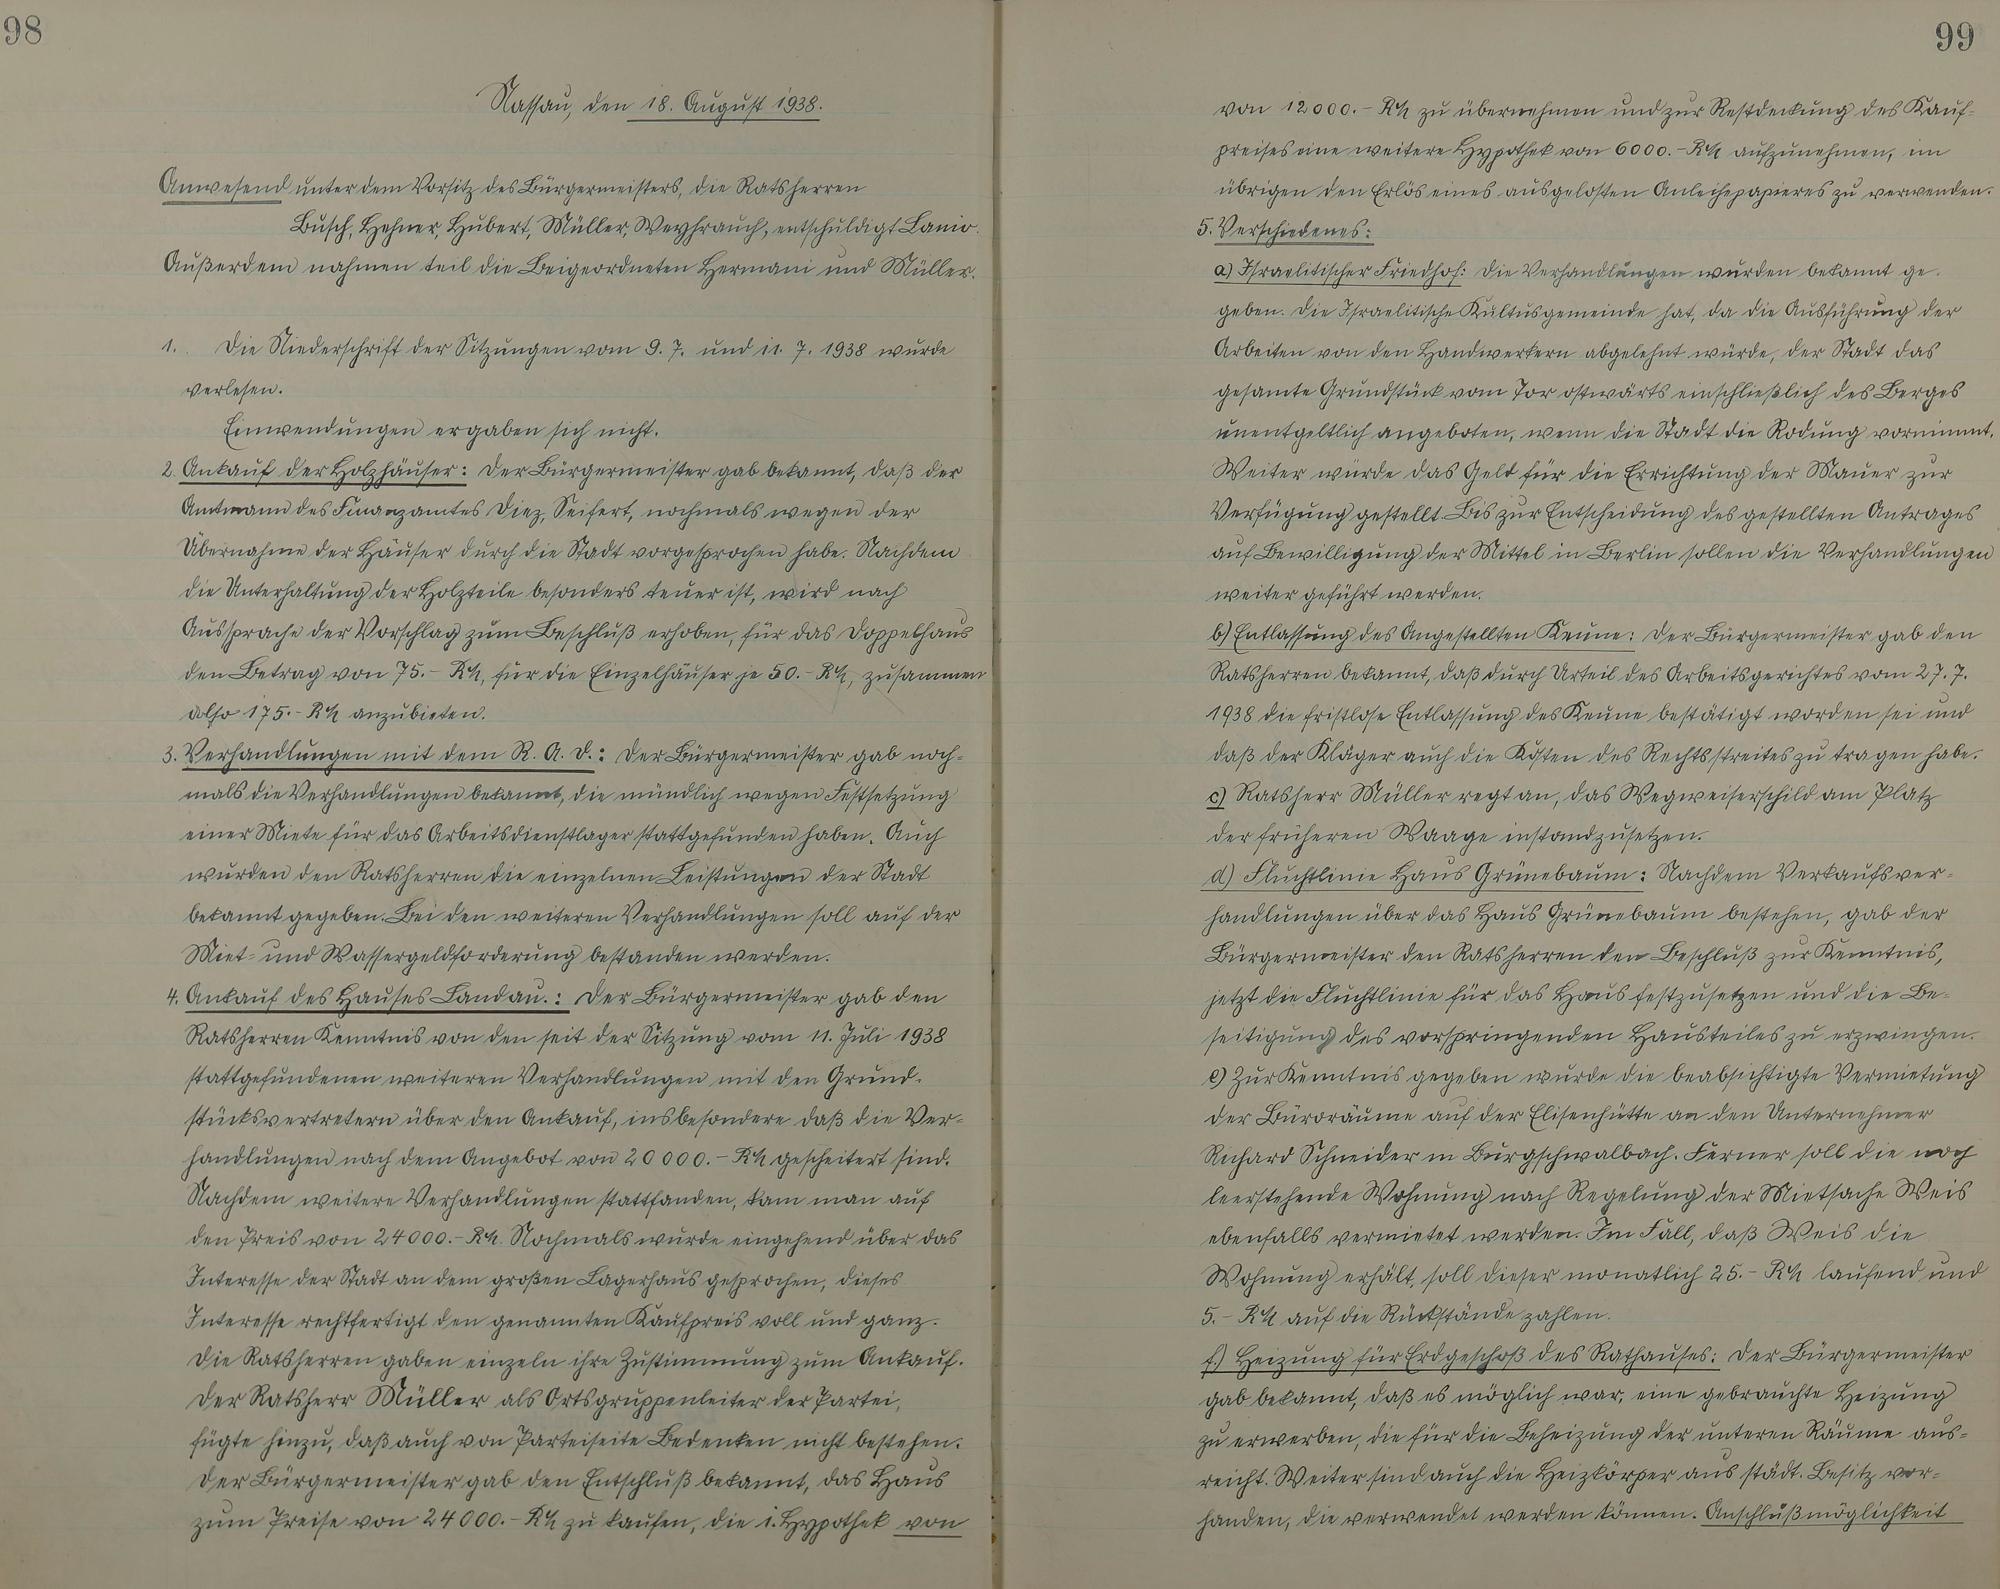 98
Nassau, den 18. August 1938.
Anwesend unter dem Vorsitz des Bürgermeisters, die Ratsherren
Busch, Hehner, Hubert, Müller, Weyhrauch, entschuldigt Lanio.
Außerdem nahmen teil die Beigeordneten Hermani und Müller.
1. Die Niederschrift der Sitzungen vom 9. 7. und 11. 7. 1938 wurde
verlesen.
Einwendungen ergaben sich nicht.
2. Ankauf der Holzhäuser: Der Bürgermeister gab bekannt, daß der
Amtmann des Finanzamtes Diez, Seifert, nochmals wegen der
Übernahme der Häuser durch die Stadt vorgesprochen habe. Nachdem
die Unterhaltung der Holzteile besonders teuer ist, wird nach
Aussprache der Vorschlag zum Beschluß erhoben, für das Doppelhaus
den Betrag von 75.- RM, für die Einzelhäuser je 50.- RM, zusammen
also 175.- RM anzubieten.
3. Verhandlungen mit dem R. A. D.: Der Bürgermeister gab noch-
mals die Verhandlungen bekannt, die mündlich wegen Festsetzung
einer Miete für das Arbeitsdienstlager stattgefunden haben. Auch
wurden den Ratsherren die einzelnen Leistungen der Stadt
bekannt gegeben. Bei den weiteren Verhandlungen soll auf der
Miet- und Wassergeldforderung bestanden werden.
4. Ankauf des Hauses Landau.: Der Bürgermeister gab den
Ratsherren Kenntnis von den seit der Sitzung vom 11. Juli 1938
stattgefundenen weiteren Verhandlungen mit den Grund-
stücksvertretern über den Ankauf, insbesondere daß die Ver-
handlungen nach dem Angebot von 20 000.- RM gescheitert sind.
Nachdem weitere Verhandlungen stattfanden, kam man auf
den Preis von 24 000.- RM. Nochmals wurde eingehend über das
Interesse der Stadt an dem großen Lagerhaus gesprochen, dieses
Interesse rechtfertigt den genannten Kaufpreis voll und ganz.
Die Ratsherren gaben einzeln ihre Zustimmung zum Ankauf.
Der Ratsherr Müller als Ortsgruppenleiter der Partei,
fügte hinzu, daß auch von Parteiseite Bedenken nicht bestehen.
Der Bürgermeister gab den Entschluß bekannt, das Haus
zum Preise von 24 000.- RM zu kaufen, die 1. Hypothek von
99
von 12 000.- RM zu übernehmen und zur Restdeckung des Kauf-
preises eine weitere Hypothek von 6000.- RM aufzunehmen, im
übrigen den Erlös eines ausgelosten Anleihepapieres zu verwenden.
5. Verschiedenes:
a) Israelitischer Friedhof: Die Verhandlungen wurden bekannt ge-
geben. Die Israelitische Kultusgemeinde hat, da die Ausführung der
Arbeiten von den Handwerkern abgelehnt würde, der Stadt das
gesamte Grundstück vom Tor ostwärts einschließlich des Berges
unentgeltlich angeboten, wenn die Stadt die Rodung vornimmt.
Weiter würde das Geld für die Errichtung der Mauer zur
Verfügung gestellt. Bis zur Entscheidung des gestellten Antrages
auf Bewilligung der Mittel in Berlin sollen die Verhandlungen
weiter geführt werden.
b) Entlassung des Angestellten Keune: Der Bürgermeister gab den
Ratsherren bekannt, daß durch Urteil des Arbeitsgerichtes vom 27. 7.
1938 die fristlose Entlassung des Keune bestätigt worden sei und
daß der Kläger auch die Kosten des Rechtsstreites zu tragen habe.
c) Ratsherr Müller regt an, das Wegweiserschild am Platz
der früheren Waage instandzusetzen.
d) Fluchtlinie Haus Grünebaum: Nachdem Verkaufsver-
handlungen über das Haus Grünebaum bestehen, gab der
Bürgermeister den Ratsherren den Beschluß zur Kenntnis,
jetzt die Fluchtlinie für das Haus festzusetzen und die Be-
seitigung des vorspringenden Hausteiles zu erzwingen.
e) Zur Kenntnis gegeben wurde die beabsichtigte Vermietung
der Büroräume auf der Elisenhütte an den Unternehmer
Richard Schneider in Burgschwalbach. Ferner soll die noch
leerstehende Wohnung nach Regelung der Mietsache Weis
ebenfalls vermietet werden. Im Fall, daß Weis die
Wohnung erhält, soll dieser monatlich 25.- RM laufend und
5.- RM auf die Rückstände zahlen.
f.) Heizung für Erdgeschoß des Rathauses: Der Bürgermeister
gab bekannt, daß es möglich war, eine gebrauchte Heizung
zu erwerben, die für die Beheizung der unteren Räume aus-
reicht. Weiter sind auch die Heizkörper aus städt. Besitz vor-
handen, die verwendet werden können. Anschlußmöglichkeit